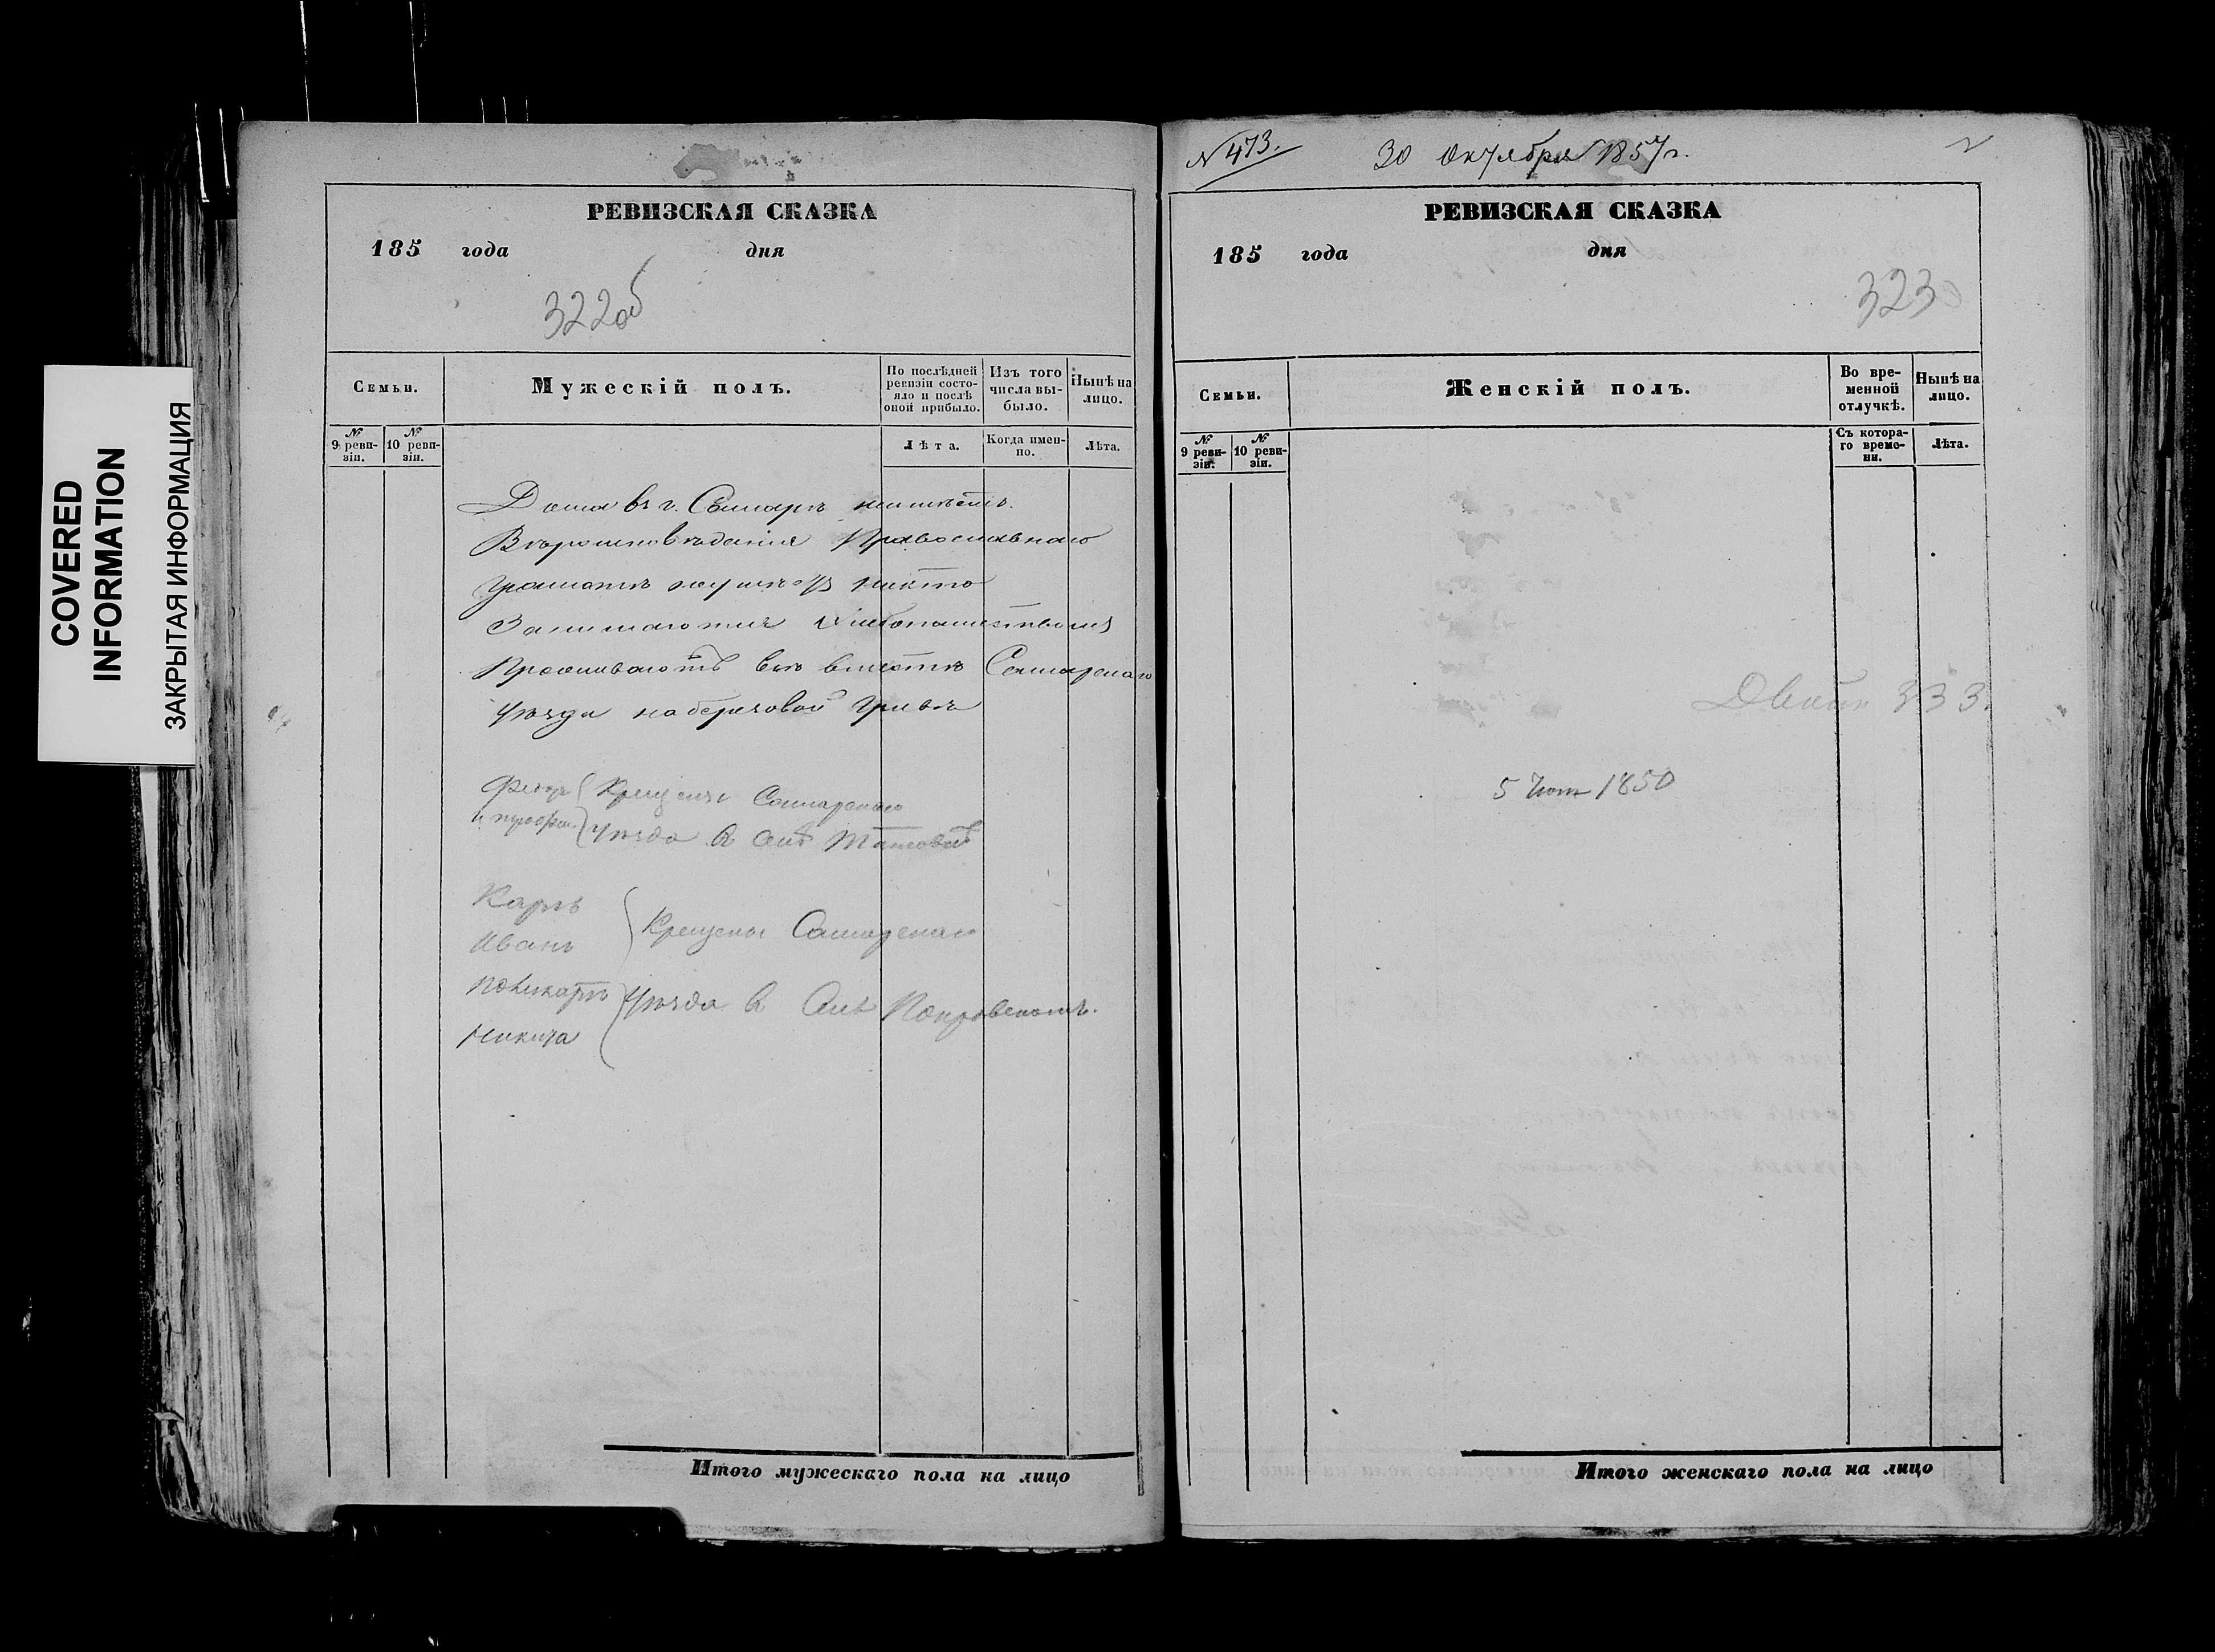 COVERED
INFORMATION
ЗАКРЫТАЯ ИНФОРМАЦИЯ
РЕВИЗСКАЯ СКАЗКА
185 года дня
322об
Семьи.
Мужескій полъ.
По послѣдней ревизіи состояло и послѣ оной прибыло.
Изъ того числа выбыло.
Нынѣ на лицо.
№ 9 ревизіи.
№ 10 ревизіи.
Лѣта.
Когда именно.
Лѣта.
Дома въ г. Самарѣ
Вѣроисповѣданія Православнаго
грамотѣ никто
Занимаются хлѣбопашествомъ
Проживаютъ всѣ вмѣстѣ Самарскаго
уѣзда на березовой Гривѣ
Крещены Самарскаго
уѣзда в селѣ
Карпъ
Иванъ
Крещены Самарскаго
Поликарпъ
уѣзда в Селѣ Покровскомъ.
Никита
N 473.
30 Октября 1857 г.
РЕВИЗСКАЯ СКАЗКА
185 года дня
323
Семьи.
Женскій полъ.
Во временной отлучкѣ.
Нынѣ на лицо.
№ 9 ревизіи.
№ 10 ревизіи.
Съ котораго времони.
Лѣта.
333.
5 1850
Итого мужескаго пола на лицо
Итого женскаго пола на лицо